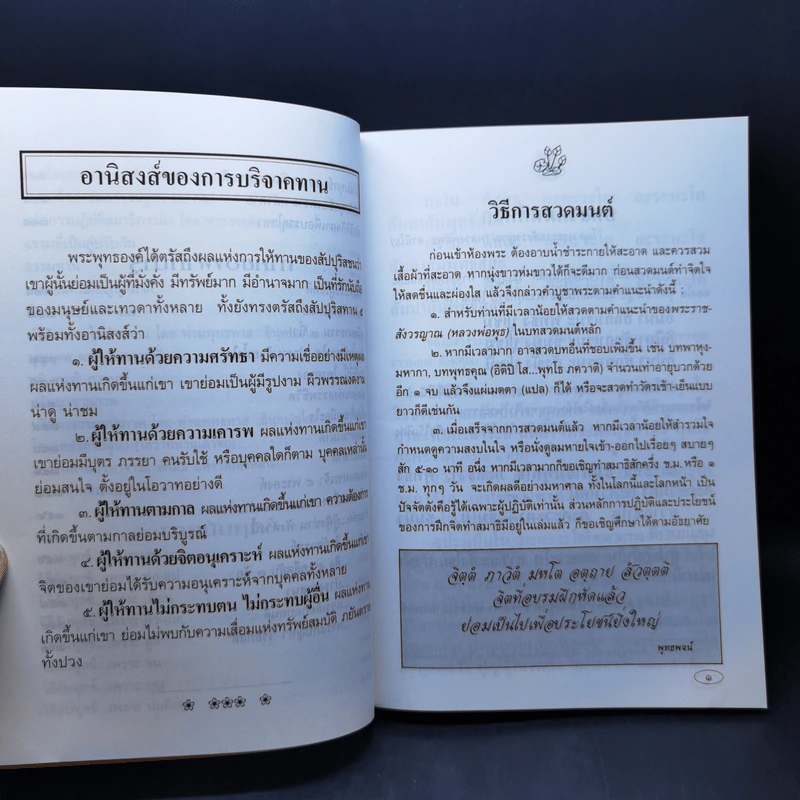 อานิสงส์ของการบริจาคทาน
พระพุทธองค์ได้ตรัสถึงผลแห่งการให้ทานของสัปปุริสชนว่า
เขาผู้นั้นย่อมเป็นผู้ที่มั่งคั่ง มีทรัพย์มาก มีอำนาจมาก เป็นที่รักนับถือ
ของมนุษย์และเทวดาทั้งหลาย ทั้งยังทรงตรัสถึงสัปปุริสทาน ๕
พร้อมทั้งอานิสงส์ว่า
๑. ผู้ให้ทานด้วยความศรัทธา มีความเชื่ออย่างมีเหตุผล
ผลแห่งทานเกิดขึ้นแก่เขา เขาย่อมเป็นผู้มีรูปงาม ผิวพรรณงดงาม
น่าดู น่าชม
๒. ผู้ให้ทานด้วยความเคารพ ผลแห่งทานเกิดขึ้นแก่เขา
เขาย่อมมีบุตร ภรรยา คนรับใช้ หรือบุคคลใดก็ตาม บุคคลเหล่านั้น
ย่อมสนใจ ตั้งอยู่ในโอวาทอย่างดี
๓. ผู้ให้ทานตามกาล ผลแห่งทานเกิดขึ้นแก่เขา ความต้องการ
ที่เกิดขึ้นตามกาลย่อมบริบูรณ์
๔. ผู้ให้ทานด้วยจิตอนุเคราะห์ ผลแห่งทานเกิดขึ้นแก่เขา
จิตของเขาย่อมได้รับความอนุเคราะห์จากบุคคลทั้งหลาย
๕. ผู้ให้ทานไม่กระทบตน ไม่กระทบผู้อื่น ผลแห่งทาน
เกิดขึ้นแก่เขา ย่อมไม่พบกับความเสื่อมแห่งทรัพย์สมบัติ ภยันตราย
ทั้งปวง
วิธีการสวดมนต์
ก่อนเข้าห้องพระ ต้องอาบน้ำชำระกายให้สะอาด และควรสวม
เสื้อผ้าที่สะอาด หากนุ่งขาวห่มขาวได้ก็จะดีมาก ก่อนสวดมนต์ทำจิตใจ
ให้สดชื่นและผ่องใส แล้วจึงกล่าวคำบูชาพระตามคำแนะนำดังนี้ :
๑. สำหรับท่านที่มีเวลาน้อยให้สวดตามคำแนะนำของพระราช-
สังวรญาณ (หลวงพ่อพุธ) ในบทสวดมนต์หลัก
๒. หากมีเวลามาก อาจสวดบทอื่นที่ชอบเพิ่มขึ้น เช่น บทพาหุง-
มหากา, บทพุทธคุณ (อิติปิ โส...พุทโธ ภควาติ) จำนวนเท่าอายุบวกด้วย
อีก ๑ จบ แล้วจึงแผ่เมตตา (แปล) ก็ได้ หรือจะสวดทำวัตรเช้า-เย็นแบบ
ยาวก็ดีเช่นกัน
๓. เมื่อเสร็จจากการสวดมนต์แล้ว หากมีเวลาน้อยให้สำรวมใจ
กำหนดดูความสงบในใจ หรือนั่งดูลมหายใจเข้า-ออกไปเรื่อยๆ สบายๆ
สัก ๕-๑๐ นาที อนึ่ง หากมีเวลามากก็ขอเชิญทำสมาธิสักครึ่ง ช.ม.หรือ ๑
ช.ม. ทุกๆ วัน จะเกิดผลดีอย่างมหาศาล ทั้งในโลกนี้และโลกหน้า เป็น
ปัจจัตตังคือรู้ได้เฉพาะผู้ปฏิบัติเท่านั้น ส่วนหลักการปฏิบัติและประโยชน์
ของการฝึกจิตทำสมาธิมีอยู่ในเล่มแล้ว ก็ขอเชิญศึกษาได้ตามอัธยาศัย
จิตฺตํ ภาวิตํ มหโต อตฺถาย สํวตฺตติ
จิตที่อบรมฝึกหัดแล้ว
ย่อมเป็นไปเพื่อประโยชน์ยิ่งใหญ่
พุทธพจน์
๑